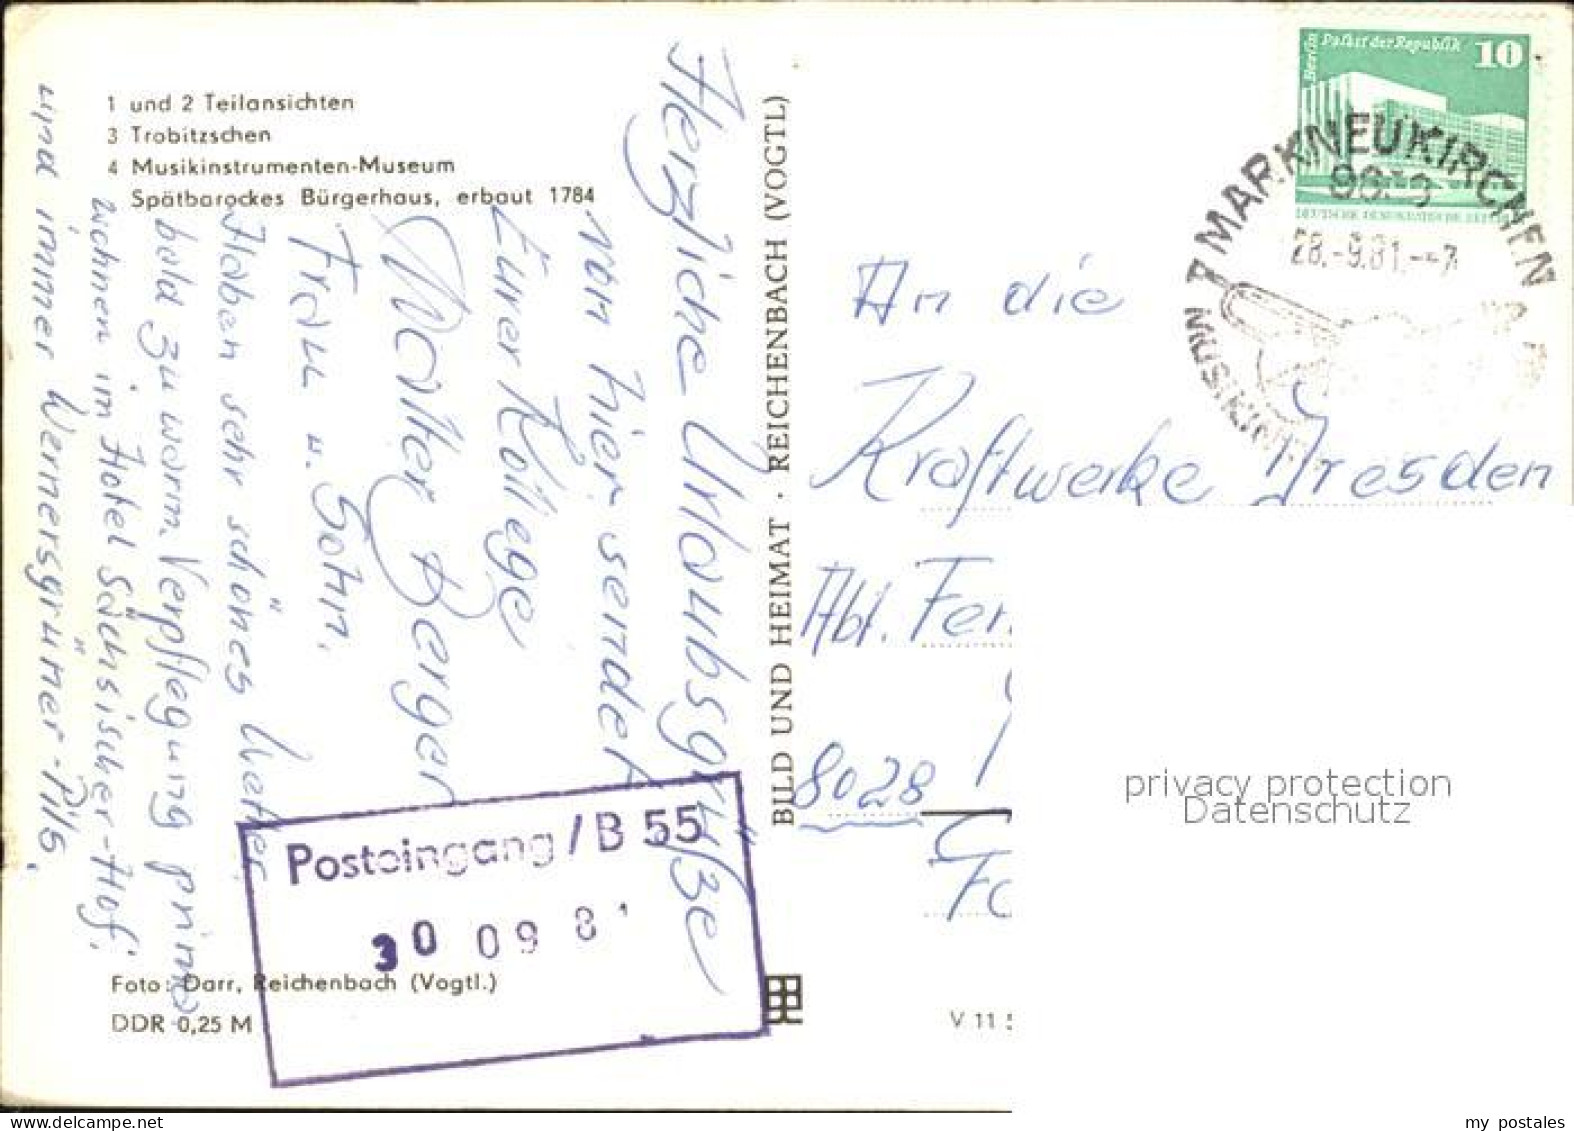 1 und 2 Teilansichten
3 Trobitzschen
4 Musikinstrumenten-Museum
Spätbarockes Bürgerhaus, erbaut 1784
Herzliche Urlaubsgrüße
von hier sendet
Euer Kollege
Walter Berger
Frau u. Sohn.
Haben sehr schönes Wetter
bald zu warm. Verpflegung prima
wohnen im Hotel Sächsischer-Hof.
und immer Wernersgrüner-Pils.
Foto: Darr, Reichenbach (Vogtl.)
DDR 0,25 M
Posteingang / B 55
30 09 81
BILD UND HEIMAT · REICHENBACH (VOGTL)
Berlin
Palast der Republik
10
DEUTSCHE DEMOKRATISCHE REP
MARKNEUKIRCHEN
28.-9.81.--7
MUSIKIN
An die
Kraftwerke Dresden
Abt. Fer
8028
V 11
privacy protection
Datenschutz
my postales